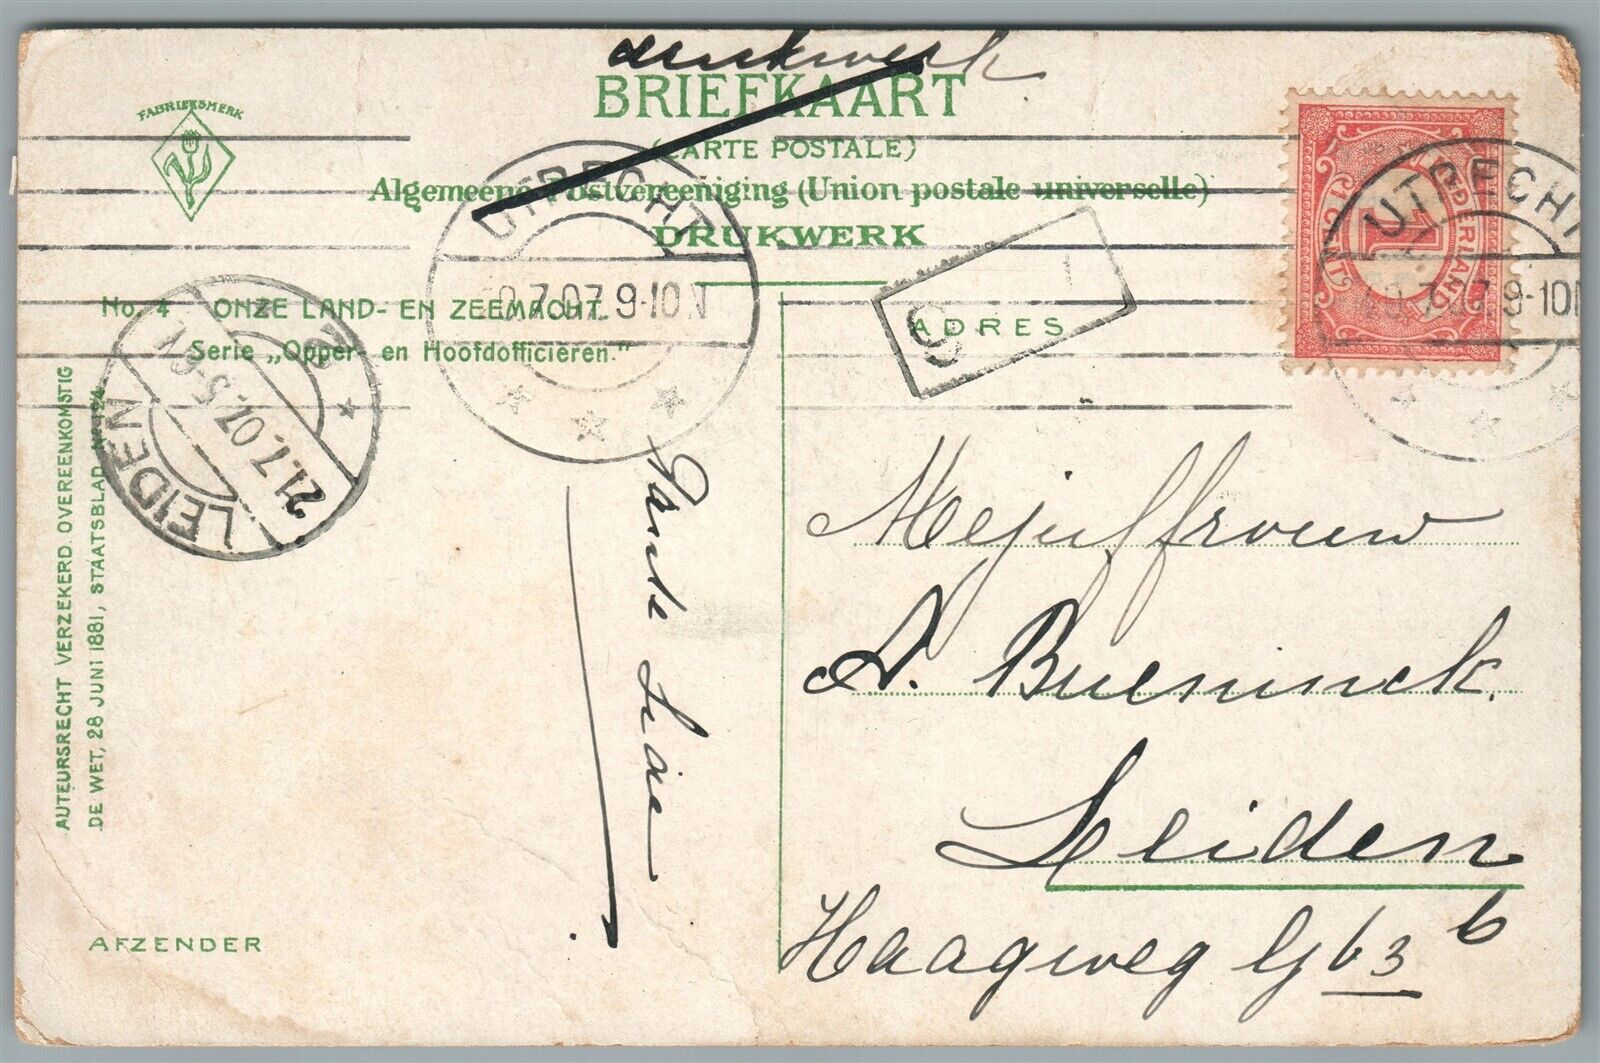 drukwerk
BRIEFKAART
(CARTE POSTALE)
Algemeene Postvereeniging (Union postale universelle)
DRUKWERK
FABRIEKSMERK
No. 4 ONZE LAND- EN ZEEMACHT.
Serie „Opper- en Hoofdofficieren."
AUTEURSRECHT VERZEKERD. OVEREENKOMSTIG
DE WET, 28 JUNI 1881, STAATSBLAD No 124.
LEIDEN
21.7.07.5-6V
2
UTRECHT
20.7.07.9-10N
9
ADRES
NEDERLAND
1
1 CENT
UTRECHT
20.7.07.9-10N
Tante
Mejuffrouw
A. Bueninck.
Leiden
Haagweg 63 b
AFZENDER